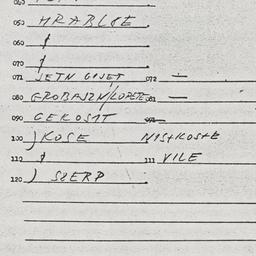 050 HRABLSE
060 /
070 /
071 JETN GOJET 072 —
080 GROBASZN/LOPETE 081 —
090 GEKOSAT 091
100 ) KOSE NIS+KOS+E
110 / 111 VILE
120 ) SZERP